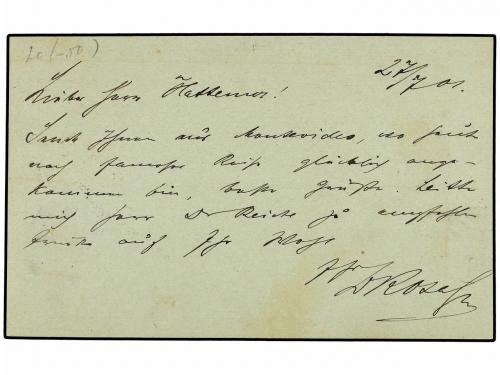 20 (-.50.)
27/7 01.
Lieber Herr Hattemer!
Sende Ihnen aus Montevideo, wo heute
nach famoser Reise glücklich ange-
kommen bin, beste Grüße. Bitte
mich Herr Dr Reiche zu empfehlen
auf Ihr Wohl
Ihr